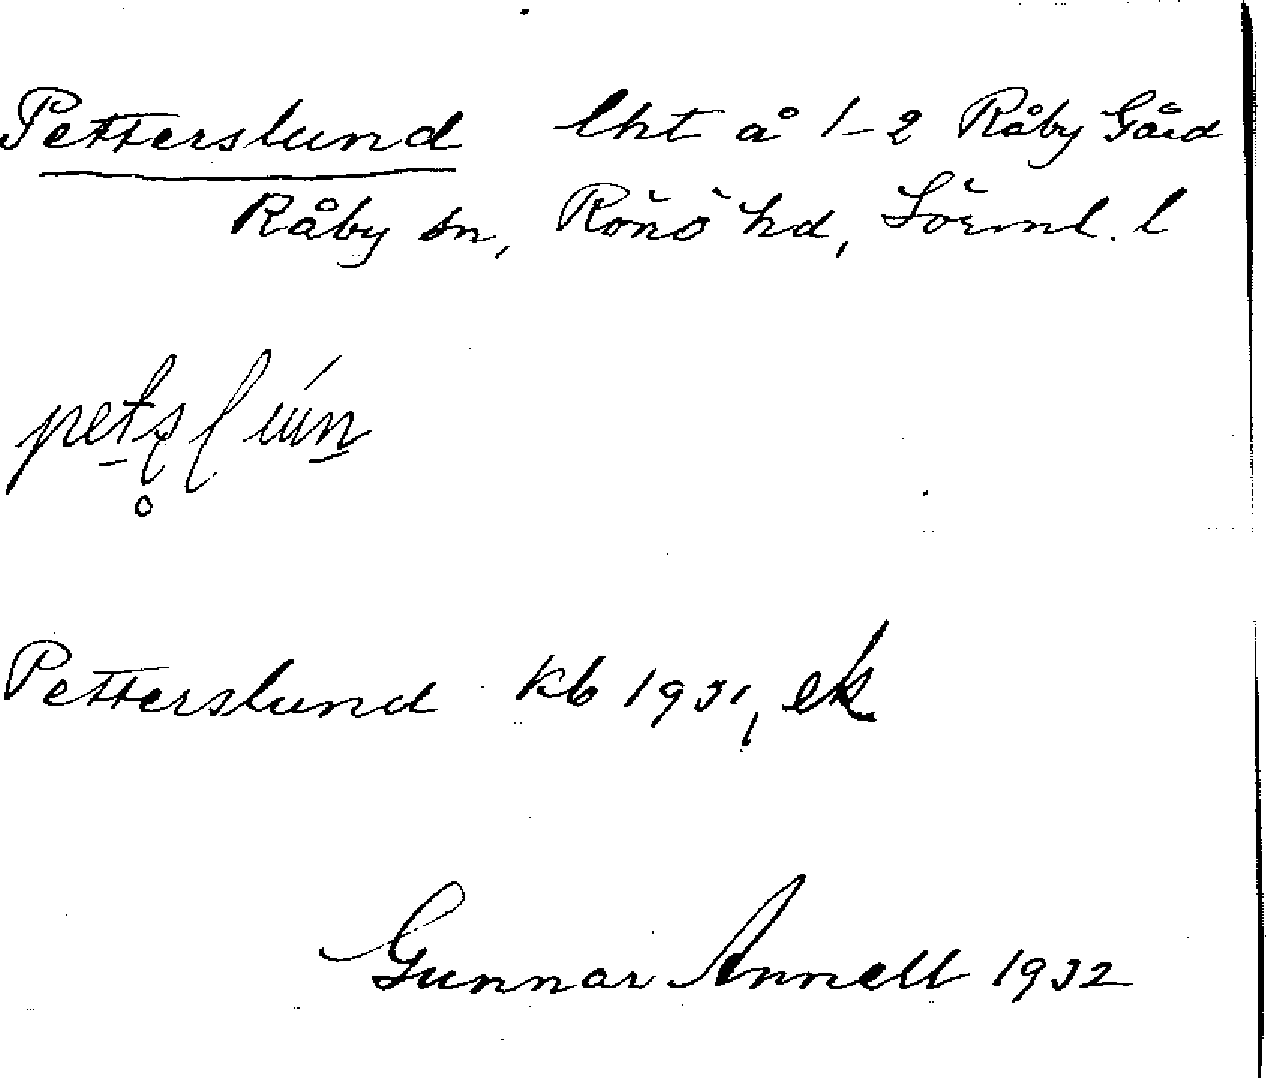 Petterslund lht å 1-2 Råby Gård
Råby sn, Rönö hd, Sörml. l
Petterslund kb 1931, ek
Gunnar Annell 1932